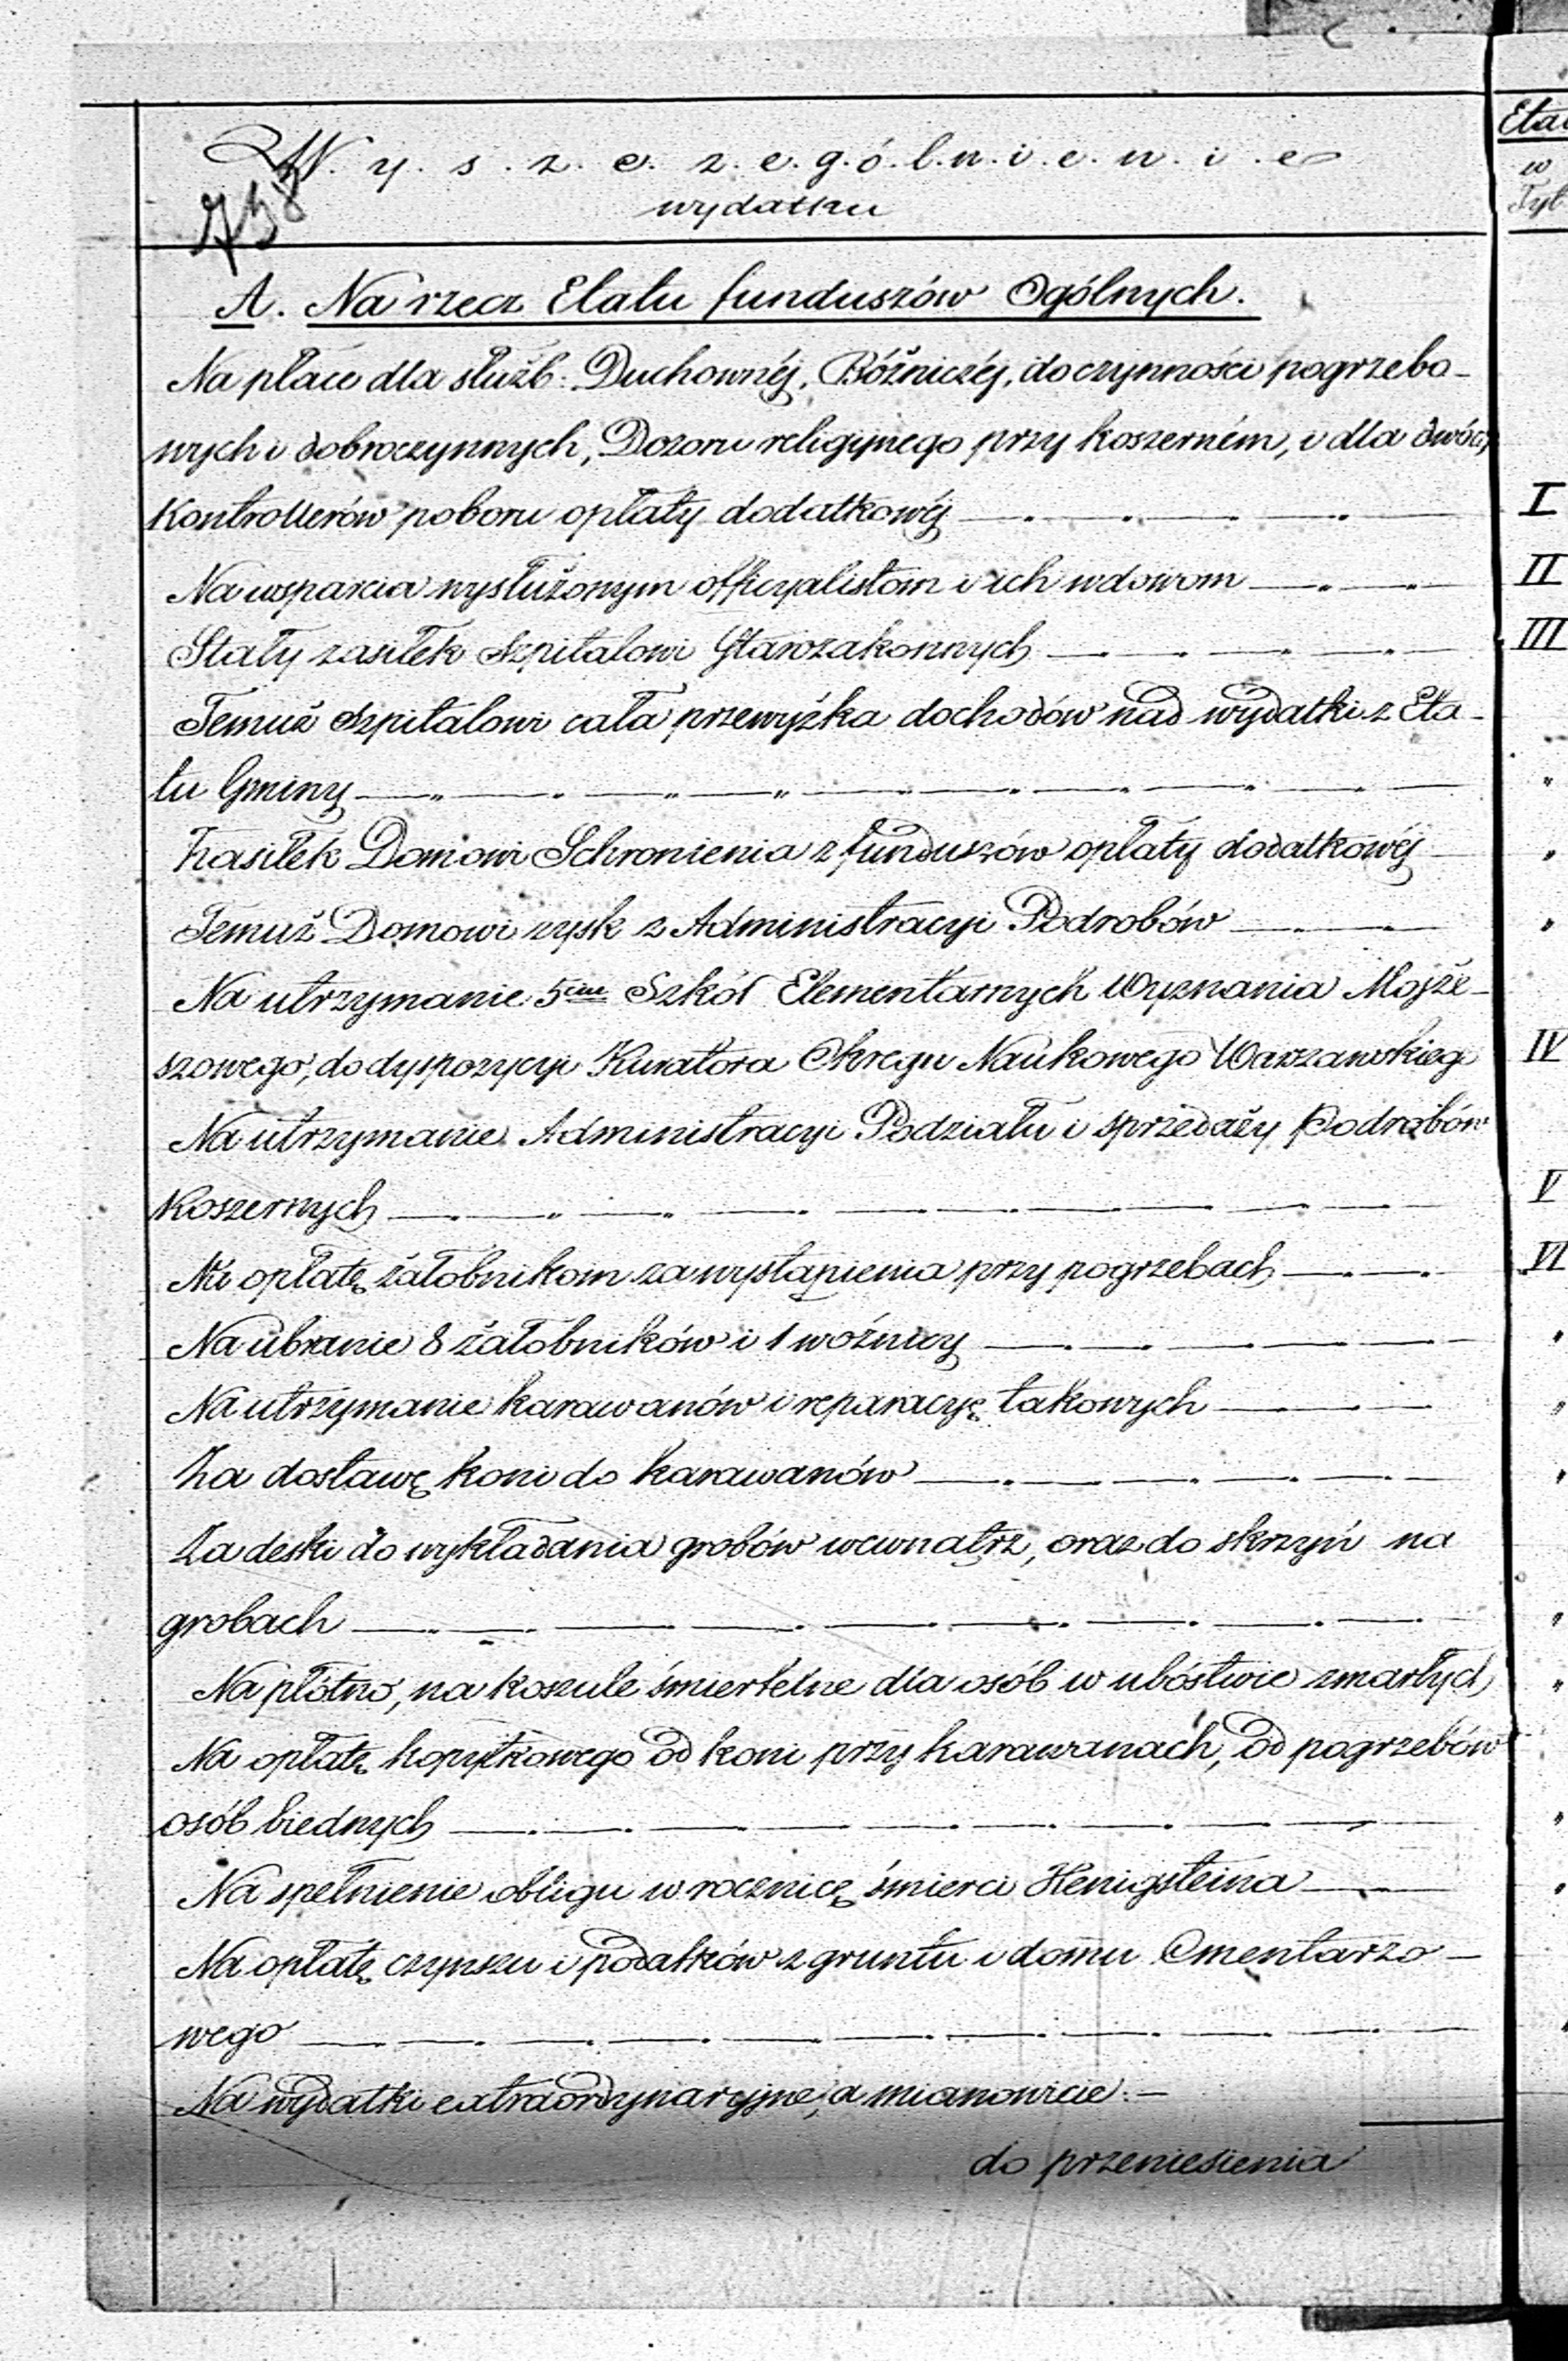 W. y. s. z. c. z. e. g. ó. l. n. i. e. n. i. e
738
wydatku
A. Na rzecz Etatu funduszów Ogólnych.
Na płace dla służb: Duchownéj, Bóżniczéj, do czynności pogrzebo-
wych i dobroczynnych, Dozoru religijnego przy koszerném, i dla dwóch
Kontrollerów poboru opłaty dodatkowéj
I
Na wsparcia wysłużonym officyalistom i ich wdowom
II
Stały zasiłek Szpitalowi Starozakonnych
III
Temuż Szpitalowi cała przewyżka dochodów nad wydatki z Eta-
tu Gminy
Zasiłek Domowi Schronienia z funduszów opłaty dodatkowéj
Temuż Domowi zysk z Administracyi Podrobów
Na utrzymanie 5ciu Szkół Elementarnych Wyznania Mojże-
szowego, do dyspozycyi Kuratora Okręgu Naukowego Warszawskieg
IV
Na utrzymanie Administracyi Podziału i sprzedaży Podrobów
Koszernych
V
Na opłatę żałobnikom za wystąpienia przy pogrzebach
VI
Na ubranie 8 żałobników i 1 woźnicy
Na utrzymanie karawanów i reparacyę takowych
Za dostawę koni do karawanów
Za deski do wykładania grobów wewnątrz, oraz do skrzyń na
grobach
Na płótno, na koszule śmiertelne dla osób w ubóstwie zmarłych
Na opłatę kopytkowego od koni przy karawanach, od pogrzebów
osób biednych
Na spełnienie obligu w rocznicę śmierci Henigsteina
Na opłatę czynszu i podatków z gruntu i domu Cmentarzo-
wego
Na wydatki extraordynaryjne, a mianowicie:-
do przeniesienia